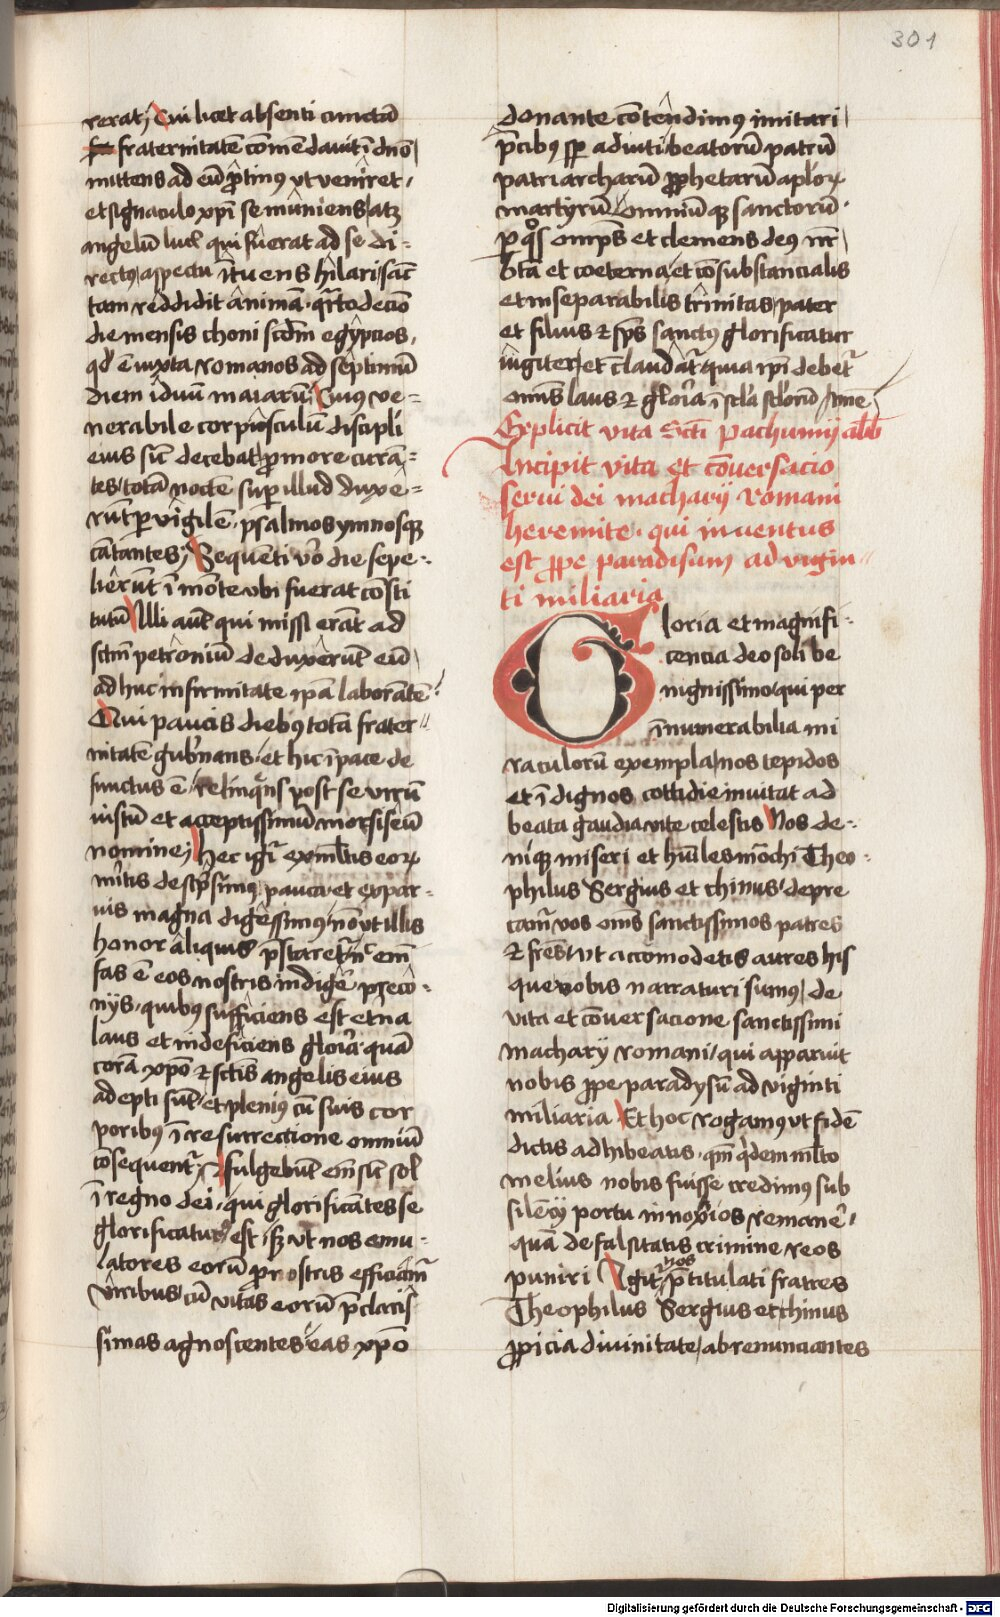 301
rerat; Cui licet absenti cunctā
fraternitatē cōmēdauit ī dn̄o
mittens ad eū p̄tinus vt veniret,
et signaculo xp̄i se mūniens atz
angelū luc̄ qui fuerat ad se di-
rectus aspectu ītuens hilari sāc
tam reddidit animā. q̄rtodecīo
die mensis choni scdm̄ egyptios,
qd̄ ē iuxta romanos ad septimū
diem iduū maiarū. Cuius ve-
nerabile corpusculū discipli
eius sūt decebat p̄ more curā-
tes, totā noctē sup illud duxe-
rūt pervigilē, psalmos ymnosqz
cātantes; Sequēti v̄o die sepe-
lierūt ī mōte vbi fuerat cōsti
tutū Illi aūt qui missi erāt ad
sc̄m petroniū deduxerūt eū
adhuc infirmitate ip̄a laborātē.
Qui paucis diebus totā frater
nitatē gub̄nans, et hic ī pace de
functus ē, relinquēs post se virū
iustū et acceptissimū morsiseū
nomine; Hec igīt ex ml̄tis eoꝝ
mītis descpsimus pauca, et ex par-
uis magna digessimus, nō vt illis
honor aliquis p̄staretur, nc̄ em̄
fas ē eos nostris indigēr p̄eco-
nijs, quibus sufficiens est etna
laus et indeficiens gloīa quā
corā xp̄o et sc̄tis angelis eius
adepti sūt, et plenius cū suis cor
poribus ī resurrectione omniū
cōsequent̄, et fulgebūt em̄ sic̄ sol
ī regno dei, qui glorificātes se
glorificaturus est, sz vt nos emu-
latores eorū p̄ nostris efficiam̄
viribus, cū vitas eorū p̄claris
simas agnoscentes, eas xp̄o
donante cōtendimus imitari
p̄cibus sp̄ adiuti beatorū patrū
patriarcharū p̄phetarū aplōꝝ
martyrū omniūqz sanctorū.
p̄ q̄s om̄ps et clemens deus nr̄
vīta et coeterna, et cōsubstancialis
et inseparabilis trinitas, pater
et filius et sp̄s sanctus glorificatur
iugiter, et claudāt̄, quia ip̄i debet̄
om̄s laus et gloīa ī scl̄a scl̄orū Amē
Explicit vita Sc̄ti Pachumij abb̄
Incipit vita et cōuersacio
serui dei macharij Romani
heremite, qui inuentus
est p̄pe paradisum ad vigin-
ti miliaria
Gloria et magnifi-
cencia deo soli be
nignissimo, qui per
īnumerabilia mi
raculorū exempla, nos tepidos
et īdignos cottidie inuitat ad
beata gaudia vite celestis Nos de-
niqz miseri et huīles mōchi Theo-
philus Sergius et chinus, depre
camr̄ vos om̄s sanctissimos patres
et frēs, vt accōmodetis aures his
que vobis narraturi sumus, de
vita et cōuersacione sanctissimi
macharij romani, qui apparuit
nobis p̄pe paradysū ad viginti
miliaria. Et hoc rogamus vt fidē
dictis adhibeatis, qm̄ qdem ml̄to
melius nobis fuisse credimus sub
silēcij portu innoxios remanēr,
quā de falsitatis crimine reos
puniri Igit̄ nos p̄titulati fratres
Theophilus Sergius et chinus
p̄picia diuinitate, abrenunciantes
Digitalisierung gefördert durch die Deutsche Forschungsgemeinschaft - DFG